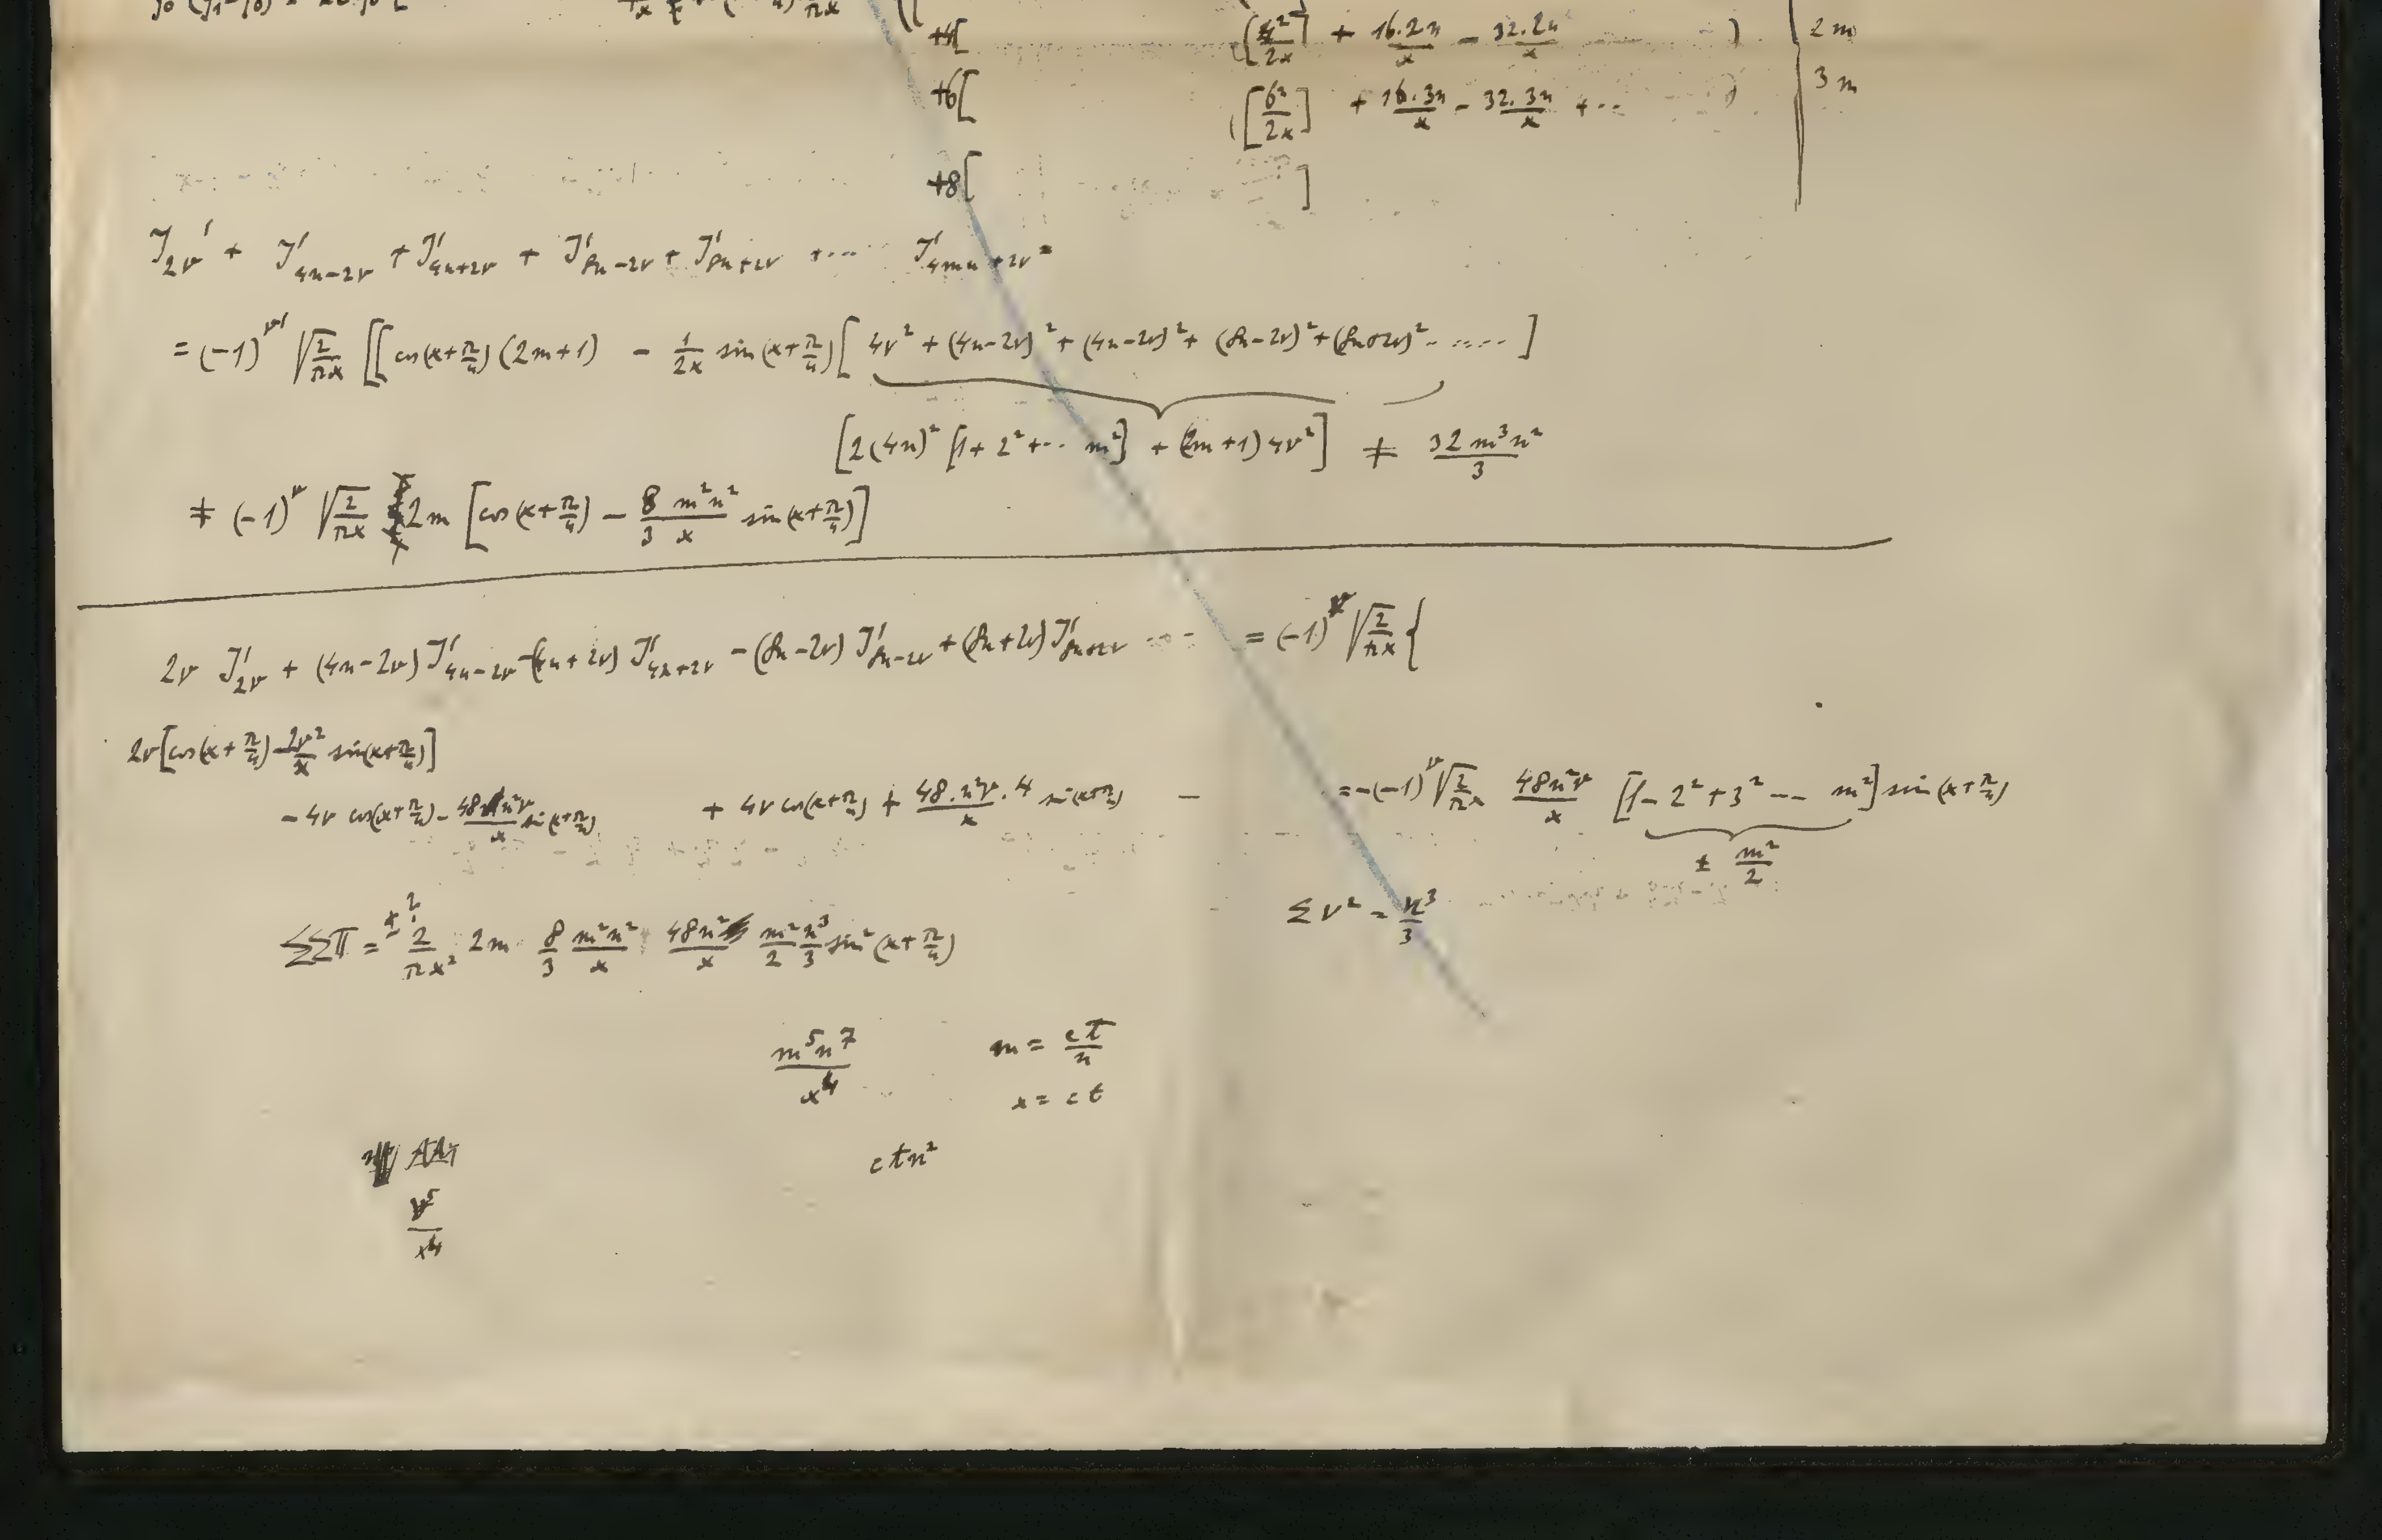 +4[ ([4²/2x] + 16.2n/x - 32.2n/x ) | 2m
+6[ ([6²/2x] + 16.3n/x - 32.3n/x + ... ) | 3m
+8[ ]
J'_{2ν} + J'_{4n-2ν} + J'_{4n+2ν} + J'_{8n-2ν} + J'_{8n+2ν} + .... J'_{4mn+2ν} =
= (-1)^ν √(2/πx) [[cos(x+π/4)(2m+1) - 1/2x sin(x+π/4)[4ν² + (4n-2ν)² + (4n-2ν)² + (8n-2ν)² + (8n+2ν)² - .....]
[2(4n)² [1+2²+... m²] + (2m+1)4ν²] ≠ 32m³n²/3
≠ (-1)^ν √(2/πx) 2m [cos(x+π/4) - 8/3 m²n²/x sin(x+π/4)]
2ν J'_{2ν} + (4n-2ν)J'_{4n-2ν} - (4n+2ν)J'_{4n+2ν} - (8n-2ν)J'_{8n-2ν} + (8n+2ν)J'_{8n+2ν} ... = (-1)^ν √(2/πx) {
2ν[cos(x+π/4) - 2ν²/x sin(x+π/4)]
- 4ν cos(x+π/4) - 48n²ν/x sin(x+π/4) + 4ν cos(x+π/4) + 48.n²ν.4/x sin(x+π/4) - = -(-1)^ν √(2/πx) 48n²ν/x [1-2²+3² -- m²] sin(x+π/4)
± m²/2
ΣΣΠ = ± 2/πx² 2m 8/3 m²n²/x 48n²/x m²/2 n³/3 sin²(x+π/4) Σν² = n³/3
m⁵n⁷/x⁴ m = ct/n
x = ct
ctn²
ν⁵/x⁴